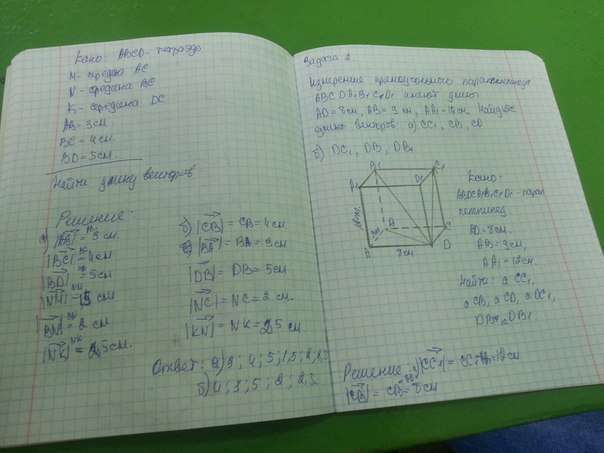 Дано: ABCD - тетраэдр
M - середина AC
N - середина BC
K - середина DC
AB = 3 см
BC = 4 см
BD = 5 см.
Найти длину векторов
Решение:
а) |AB| = 3 см.
|BC| = 4 см
|BD| = 5 см
|NM| = 1,5 см
|BN| = 2 см
|NK| = 2,5 см.
б) |CB| = CB = 4 см
|BA| = BA = 3 см
|DB| = DB = 5 см
|NC| = NC = 2 см.
|KN| = NK = 2,5 см
Ответ: а) 3; 4; 5; 1,5; 2; 2,5
б) 4; 3; 5; 2; 2,5
Задача 2
Измерения прямоугольного параллелепипеда
ABCDA1B1C1D1 имеют длины
AD = 8 см, AB = 9 см, AA1 = 12 см. Найдите
длины векторов: а) CC1, CB, CD
б) DC1, DB, DB1
B1
C1
A1
D1
12 см
9 см
B
C
A
8 см
D
Дано:
ABCDA1B1C1D1 - парал
лепипед
AD = 8 см.
AB = 9 см,
AA1 = 12 см.
Найти: а CC1,
а CB, а CD, а DC1,
DB, DB1
Решение: а) |CC1| = CC1 = 12 см
|CB| = CB = 8 см